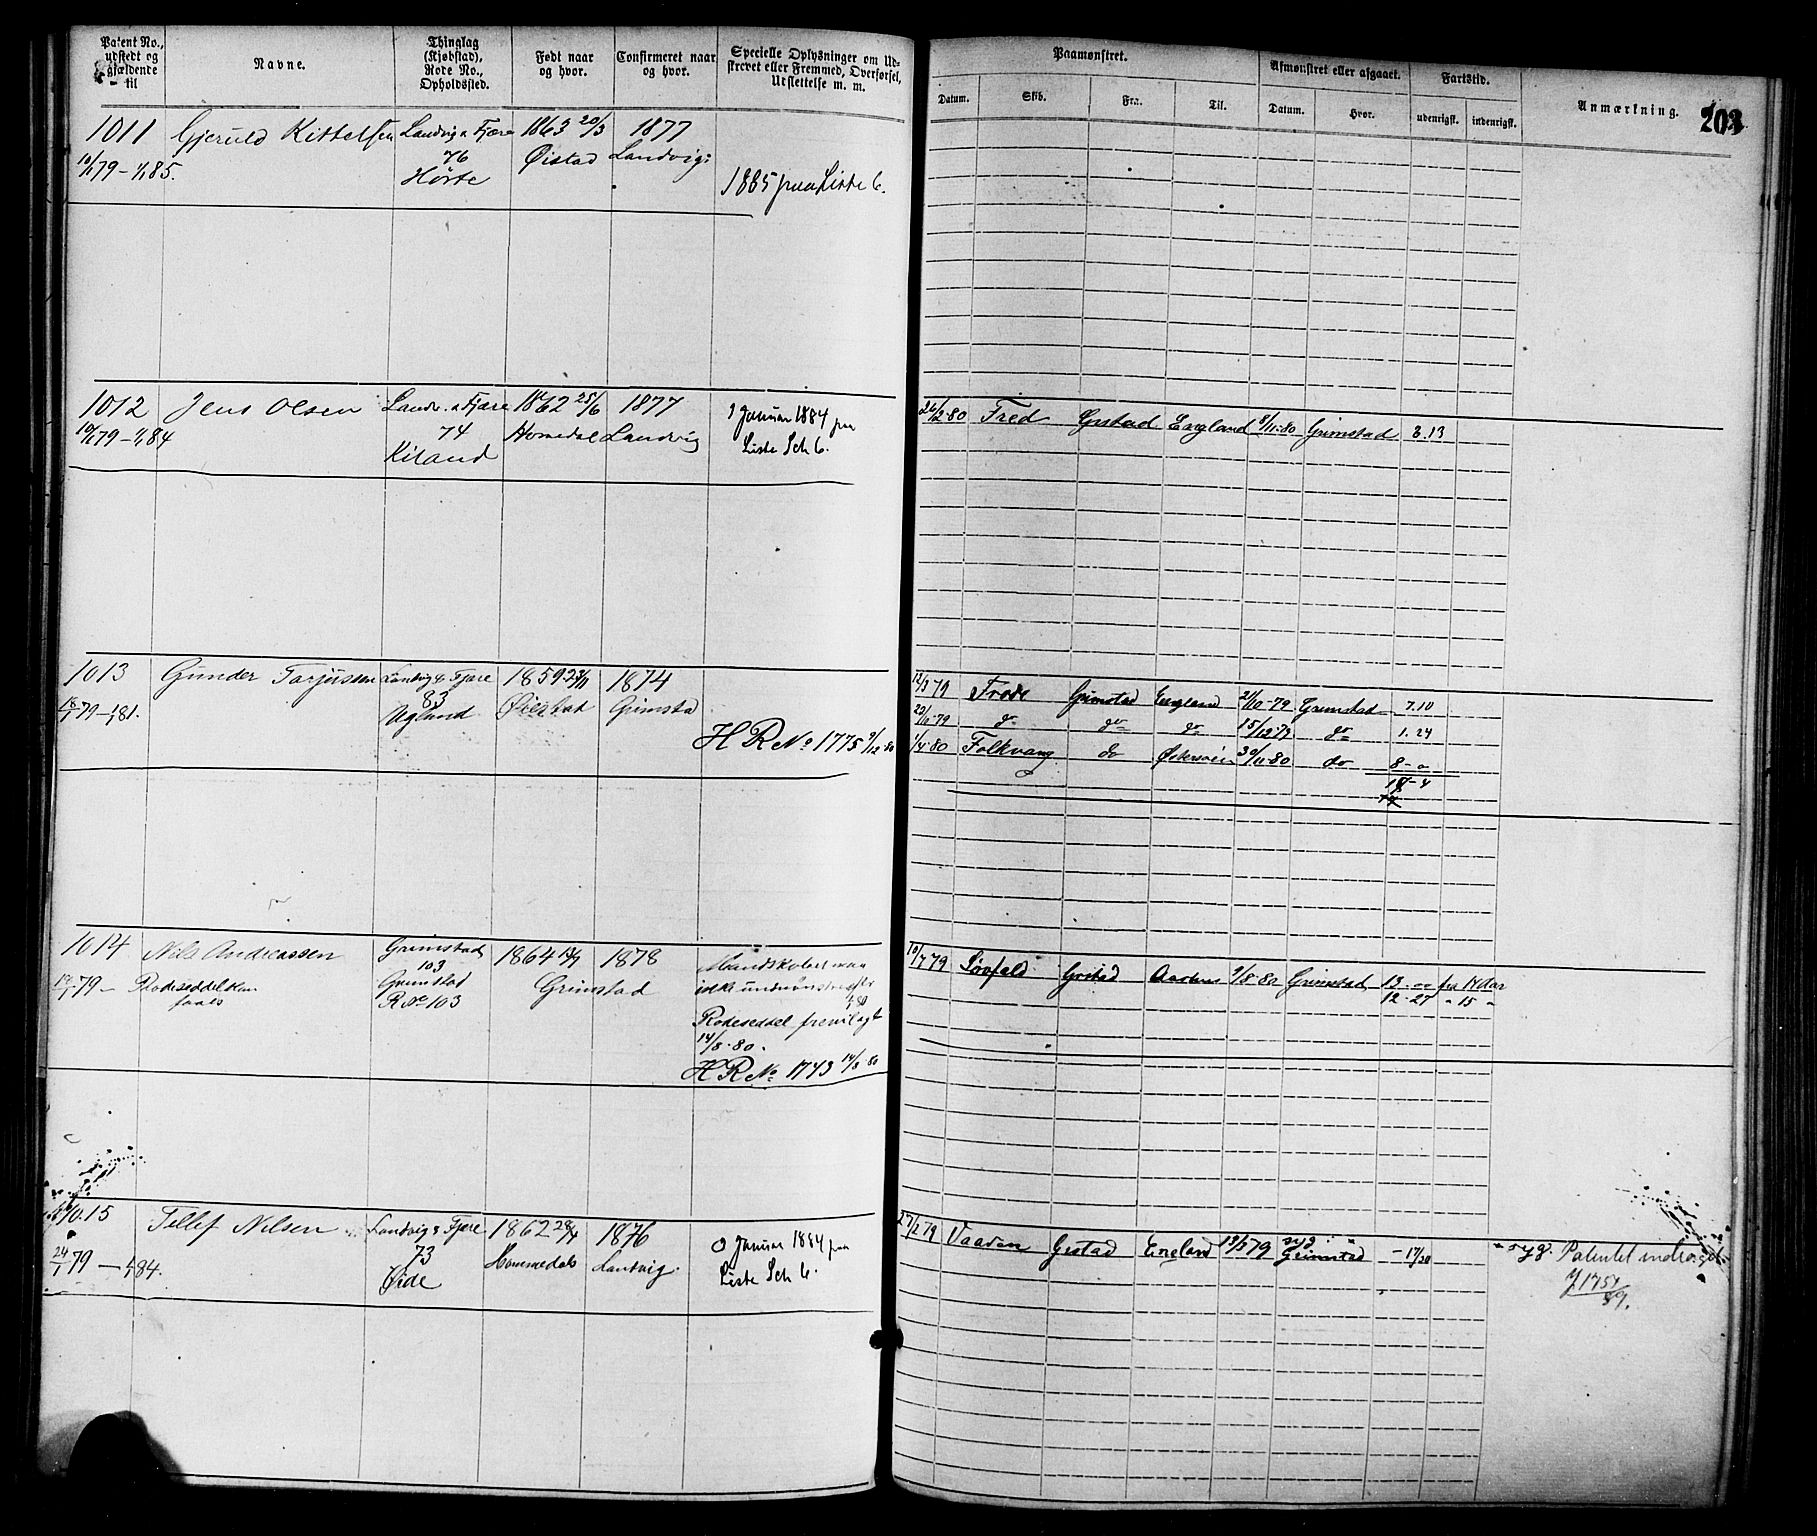 Patent No., udstedt og gjældende til
Navne.
Thinglag (Kjøbstad), Rode No., Opholdssted.
Født naar og hvor.
Confirmeret naar og hvor.
Specielle Oplysninger om Udskrevet eller Fremmed, Overførsel, Udslettelse m. m.
Paamønstret.
Afmønstret eller afgaaet.
Fartstid.
Anmærkning.
203
Datum.
Skib.
Fra.
Til.
Datum.
Hvor.
udenrigsk.
indenrigsk.
1011 Gjeruld Kittelsen Landvig & Fjære 1863 20/3 1877
10/1 79 – 1/1 85. 76 Øistad Landvig
Hørte 1885 paa Liste 6.
1012 Jens Olsen Landv. & Fjære 1862 25/6 1877 I Januar 1884 paa
10/1 79 – 1/1 84 74 Homedal Landvig Liste Sch 6.
Kiland
26/2-80 Fred Gstad England 9/11-80 Grimstad 8.13
1013 Gunder Tarjussen Landvig & Fjære 1859 1874
18/1 79 – 1/1 81. 83 Øiestad Grimsta
Ugland
H R No 1775 9/12 80
12/3 79 Frode Grimstad England 21/10-79 Grimstad 7.10
do do do 15/12-79 do 1.24
1/4-80 Folkvang do Østersøen 30/11-80 do 8 – o
1014 Nils Andreassen Grimstad 1864 1878
103 Grimstad
Grimstad
R No 103
Rodeseddel
14/8-80.
H R No 1743 14/8-80
10/7 79 Gristad 9/8-80 Grimstad 13 fra 17 dar
12-27 " 15 "
1015 Tellef Nilsen Landvig & Fjære 1862 28/4 1876 I Januar 1884 paa
24/1 79 – 1/1 84. 73 Hommedals Landvig. Liste Sch 6.
Øide
27/2 79 Vaaden Gstad England 19/5 79 syg Grimstad – 17/30 syg. Patentet
J 1751/89.